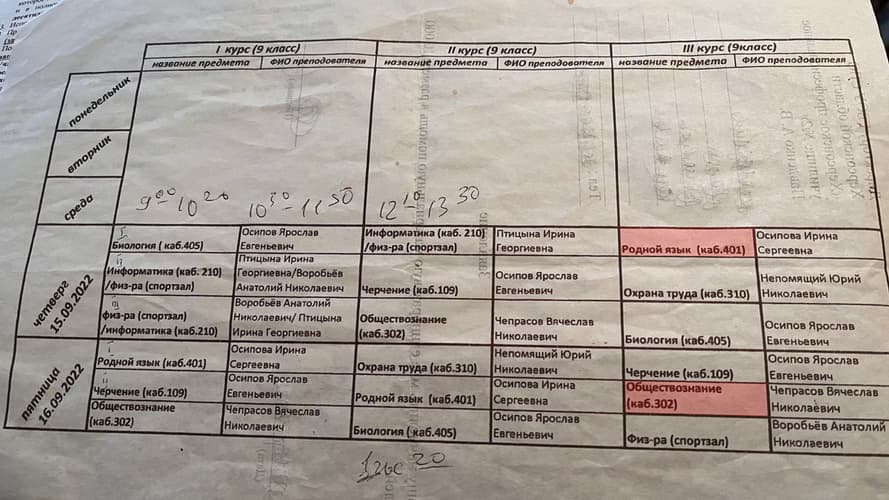 I курс (9 класс) II курс (9 класс) III курс (9класс)
название предмета ФИО преподователя название предмета ФИО преподователя название предмета ФИО преподователя
понедельник
вторник
среда
9 00 - 10 20 10 30 - 11 50 12 10 13 30
четверг
15.09.2022
I
Биология (каб.405)
Осипов Ярослав
Евгеньевич
Информатика (каб. 210)
/физ-ра (спортзал)
Птицына Ирина
Георгиевна
Родной язык (каб.401)
Осипова Ирина
Сергеевна
II
Информатика (каб. 210)
/физ-ра (спортзал)
Птицына Ирина
Георгиевна/Воробьёв
Анатолий Николаевич
Черчение (каб.109)
Осипов Ярослав
Евгеньевич
Охрана труда (каб.310)
Непомящий Юрий
Николаевич
III
физ-ра (спортзал)
/информатика (каб.210)
Воробьёв Анатолий
Николаевич/ Птицына
Ирина Георгиевна
Обществознание
(каб.302)
Чепрасов Вячеслав
Николаевич
Биология (каб.405)
Осипов Ярослав
Евгеньевич
пятница
16.09.2022
I
Родной язык (каб.401)
Осипова Ирина
Сергеевна
Охрана труда (каб.310)
Непомящий Юрий
Николаевич
Черчение (каб.109)
Осипов Ярослав
Евгеньевич
II
Черчение (каб.109)
Осипов Ярослав
Евгеньевич
Родной язык (каб.401)
Осипова Ирина
Сергеевна
Обществознание
(каб.302)
Чепрасов Вячеслав
Николаевич
Обществознание
(каб.302)
Чепрасов Вячеслав
Николаевич
Биология (каб.405)
Осипов Ярослав
Евгеньевич
Физ-ра (спортзал)
Воробьёв Анатолий
Николаевич
20